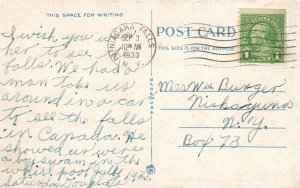 THIS SPACE FOR WRITING
I wish you
her to see
falls. We had a
man take us
around in a car
to see the falls
in Canada. He
showed us were
a boy swam in the
whir. pool July 1933.
Saturday Douglas
NIAGARA FALLS
SEP 3
10 AM
1933
N.Y.
POST CARD
THIS SIDE IS FOR THE ADDRESS
Mrs Wm Burger
Niskayuna
N.Y.
Box 73